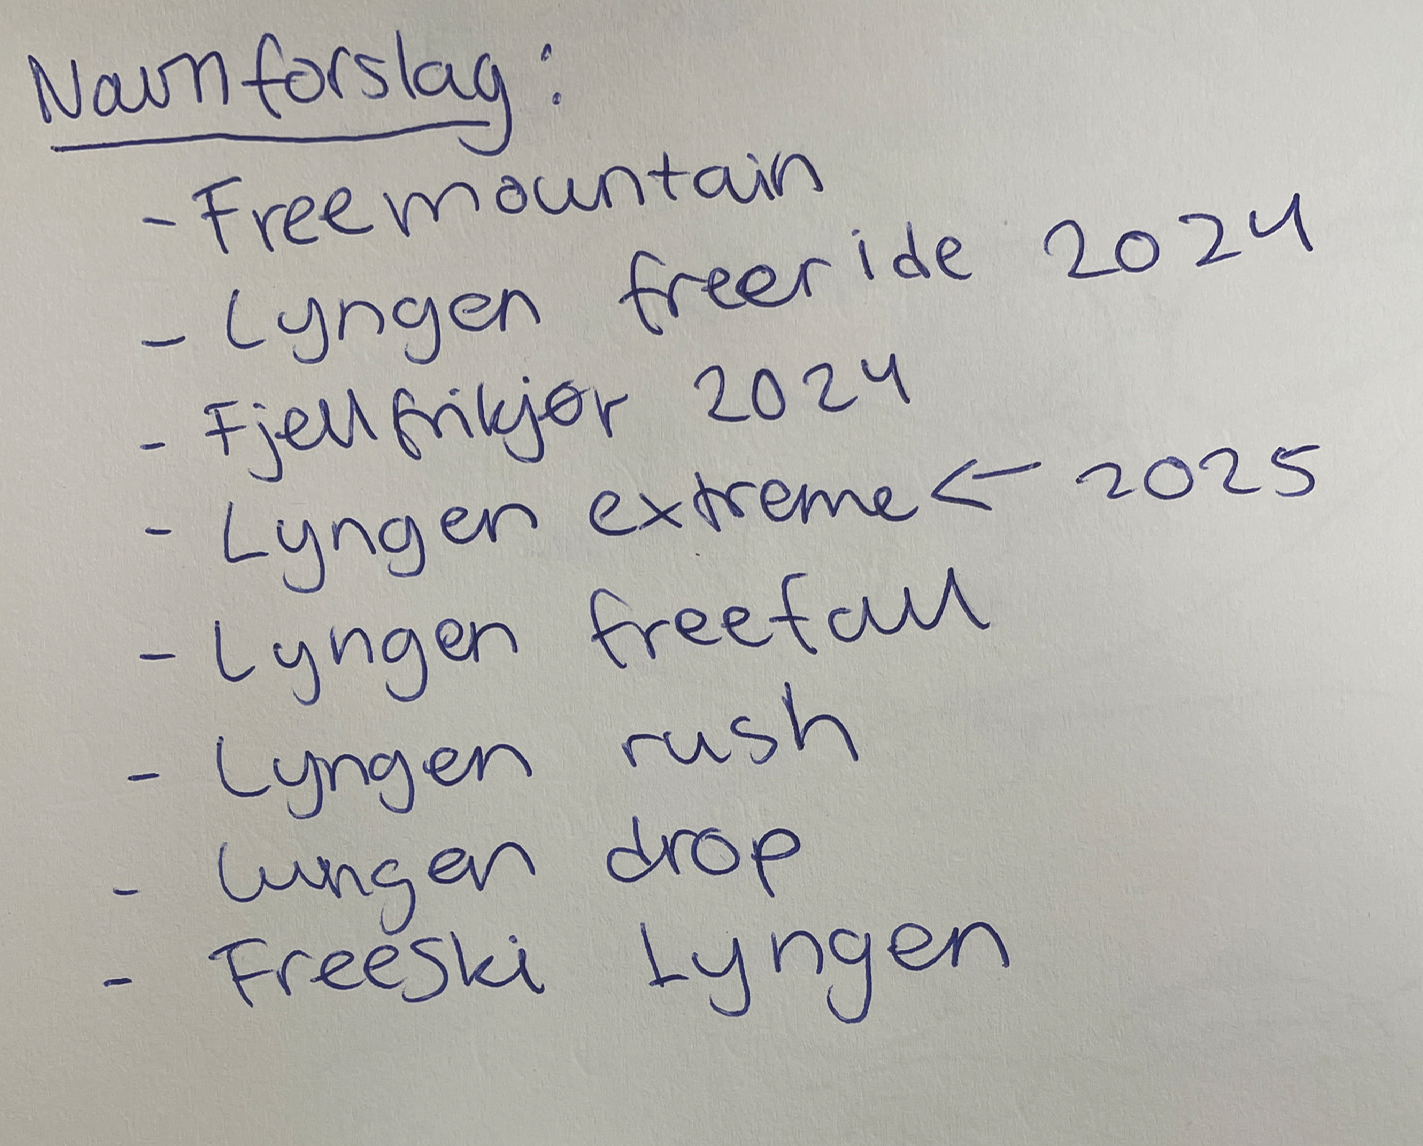 Navnforslag:
- Freemountain
- Lyngen freeride 2024
- Fjellfrikjør 2024
- Lyngen extreme ← 2025
- Lyngen freefall
- Lyngen rush
- Lyngen drop
- Freeski Lyngen